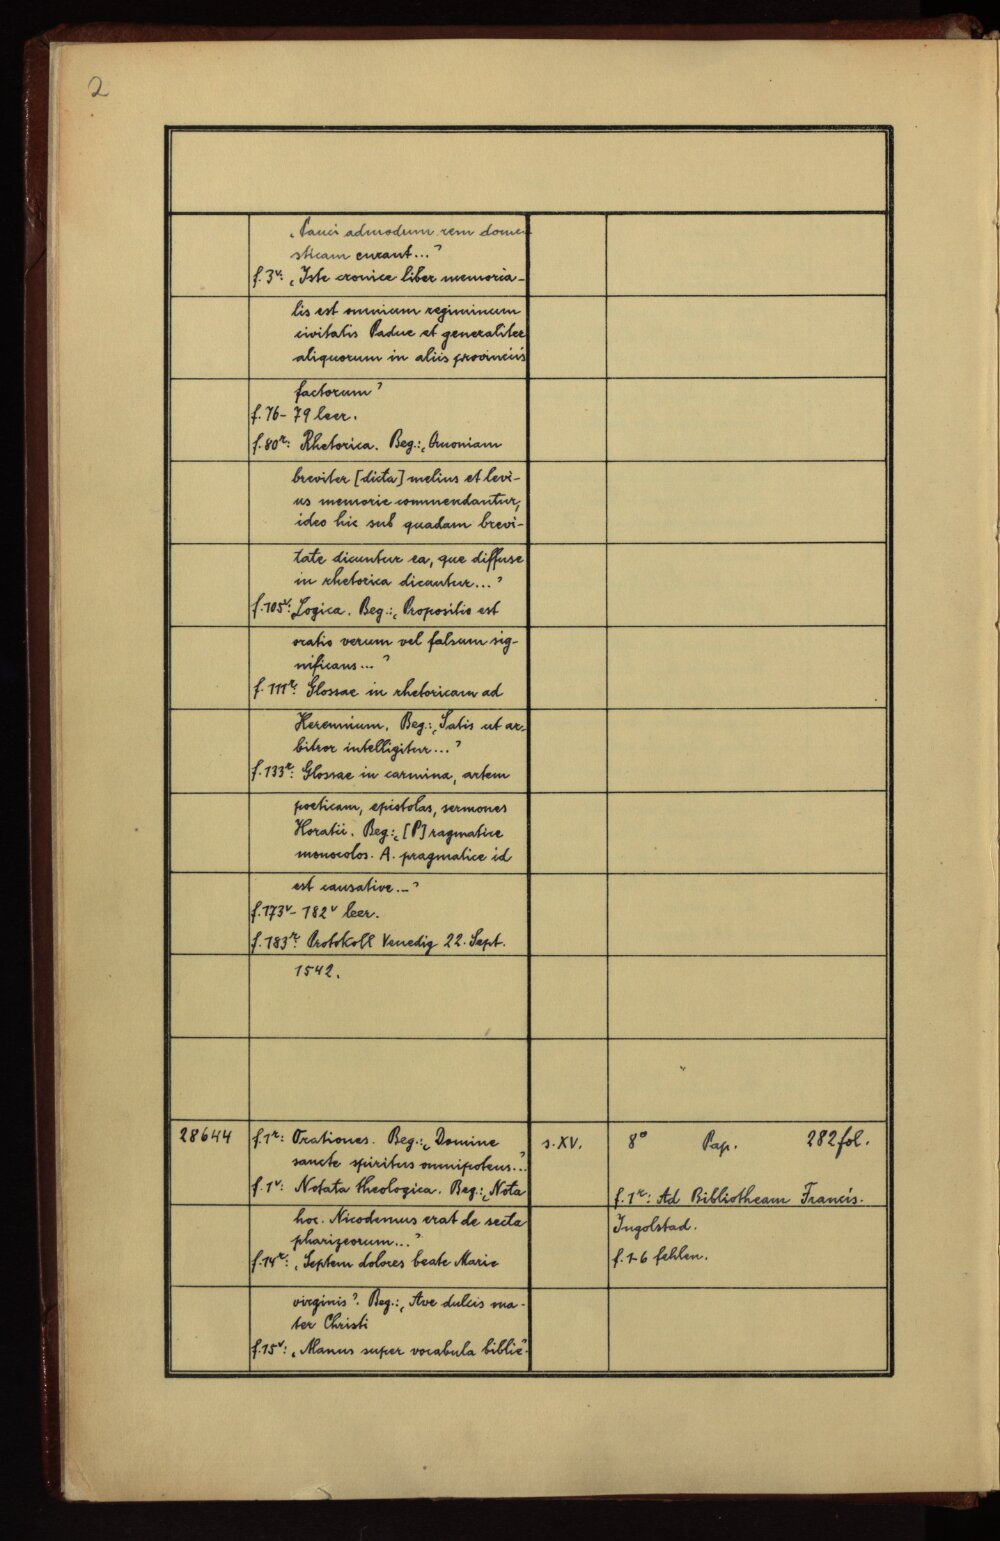 2
„Pauci admodum rem dome-
sticam curant..."
f.3v: „Iste cronice liber memoria-
lis est omnium regiminum
civitatis Padue et generaliter
aliquorum in aliis provinciis
factorum"
f.76-79 leer.
f.80r: Rhetorica. Beg.: „Quoniam
breviter [dicta] melius et levi-
us memorie commendantur,
ideo hic sub quadam brevi-
tate dicuntur ea, que diffuse
in rhetorica dicantur..."
f.105v: Logica. Beg.: „Propositio est
oratio verum vel falsum sig-
nificans..."
f.111r: Glossae in rhetoricam ad
Herennium. Beg.: „Satis ut ar-
bitror intelligitur..."
f.133r: Glossae in carmina, artem
poeticam, epistolas, sermones
Horatii. Beg.: „[P]ragmatice
monocolos. A. pragmatice id
est causative.–"
f.173v-182v leer.
f.183r: Protokoll Venedig 22. Sept.
1542.
28644 f.1r: Orationes. Beg.: „Domine s.XV. 8° Pap. 282 fol.
sancte spiritus omnipotens..."
f.1v: Notata theologica. Beg.: „Nota f.1r: Ad Bibliothecam Francis.
hoc. Nicodemus erat de secta Ingolstad.
pharizeorum..."
f.14r: „Septem dolores beate Marie f.1-6 fehlen.
virginis". Beg.: „Ave dulcis ma-
ter Christi
f.15v: „Manus super vocabula biblie"